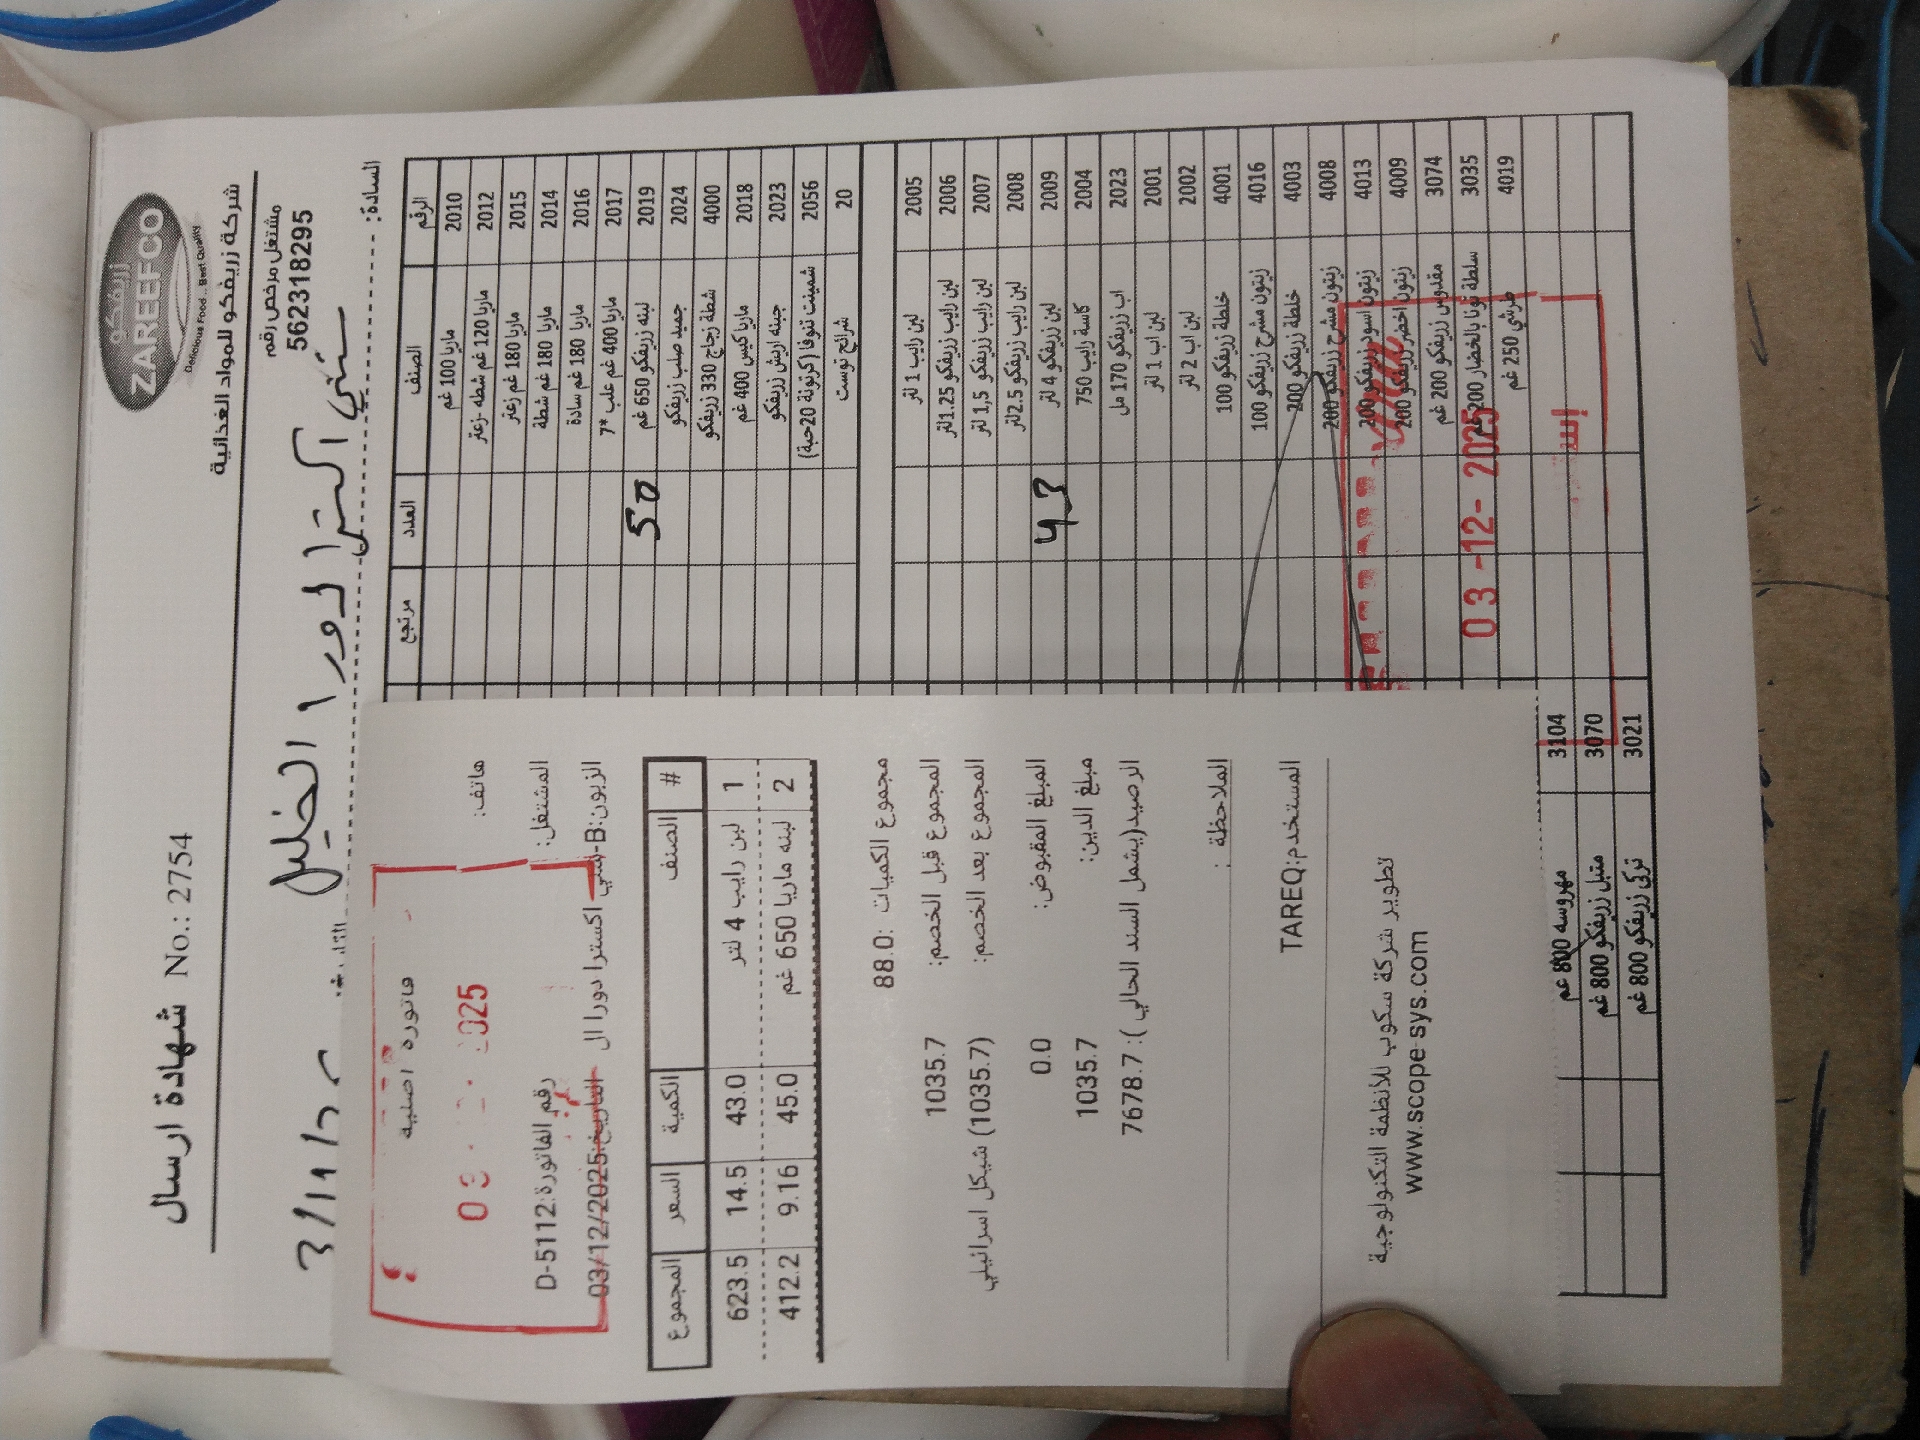 زريفكو
ZAREEFCO
Delicious Food .. Best Quality
شركة زريفكو للمواد الغذائية
مشتغل مرخص رقم
562318295
شهادة ارسال No.: 2754
سيتي اكسترا دورا الخليل
السادة:
الرقم الصنف العدد مرتجع
2010 ماريا 100 غم
2012 ماريا 120 غم شطه -زعتر
2015 ماريا 180 غم زعتر
2014 ماريا 180 غم شطة
2016 ماريا 180 غم سادة
2017 ماريا 400 غم علب *7
2019 لبنه زريفكو 650 غم 50
2024 جميد صلب زريفكو
4000 شطة زجاج 330 زريفكو
2018 ماريا كيس 400 غم
2023 جبنه اريش زريفكو
2056 شمينت تنوفا (كرتونة 20حبة)
20 شرائح توست
2005 لبن رايب 1 لتر
2006 لبن رايب زريفكو 1.25لتر
2007 لبن رايب زريفكو 1,5 لتر
2008 لبن رايب زريفكو 2.5لتر
2009 لبن زريفكو 4 لتر 43
2004 كاسة رايب 750
2023 اب زريفكو 170 مل
2001 لبن اب 1 لتر
2002 لبن اب 2 لتر
4001 خلطة زريفكو 100
4016 زيتون مشرح زريفكو 100
4003 خلطة زريفكو 200
4008 زيتون مشرح زريفكو 200
4013 زيتون اسود زريفكو 200
4009 زيتون اخضر زريفكو 200
3074 مقدوس زريفكو 200 غم
3035 سلطة تونا بالخضار 200 غم
4019 طرشي 250 غم
03 -12- 2025
3104 مهروسه 800 غم
3070 متبل زريفكو 800 غم
3021 تركي زريفكو 800 غم
فاتورة اصلية
2025
هاتف:
المشتغل: رقم الفاتورة:D-5112
الزبون:B-سيتي اكسترا دورا ال التاريخ:03/12/2025
# الصنف الكمية السعر المجموع
1 لبن رايب 4 لتر 43.0 14.5 623.5
2 لبنه ماريا 650 غم 45.0 9.16 412.2
مجموع الكميات :88.0
المجموع قبل الخصم: 1035.7
المجموع بعد الخصم: (1035.7) شيكل اسرائيلي
المبلغ المقبوض: 0.0
مبلغ الدين: 1035.7
الرصيد(يشمل السند الحالي ): 7678.7
الملاحظة :
المستخدم:TAREQ
تطوير شركة سكوب للأنظمة التكنولوجية
www.scope-sys.com